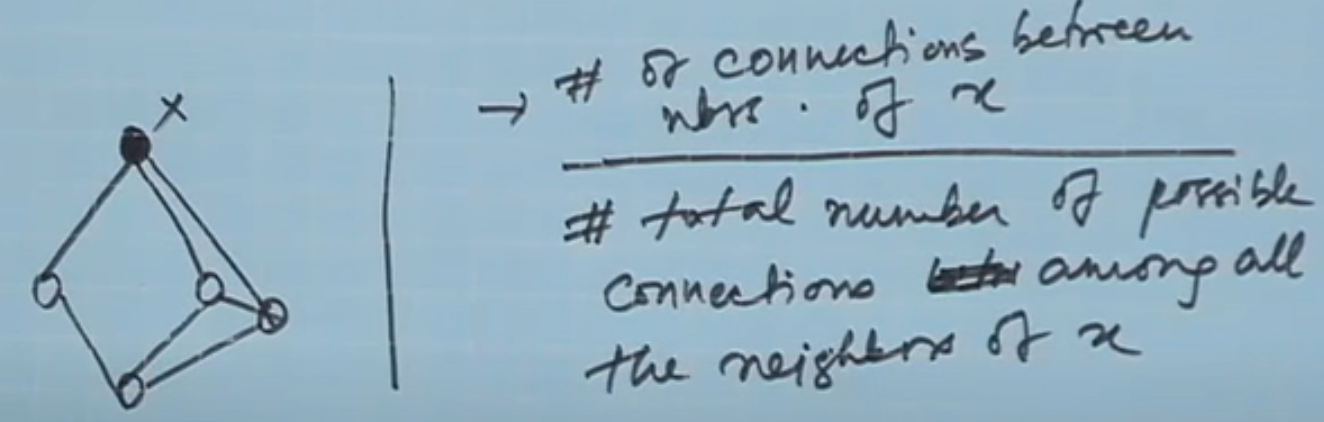 x
→ # of connections between
nbrs. of x
# total number of possible
connections among all
the neighbors of x